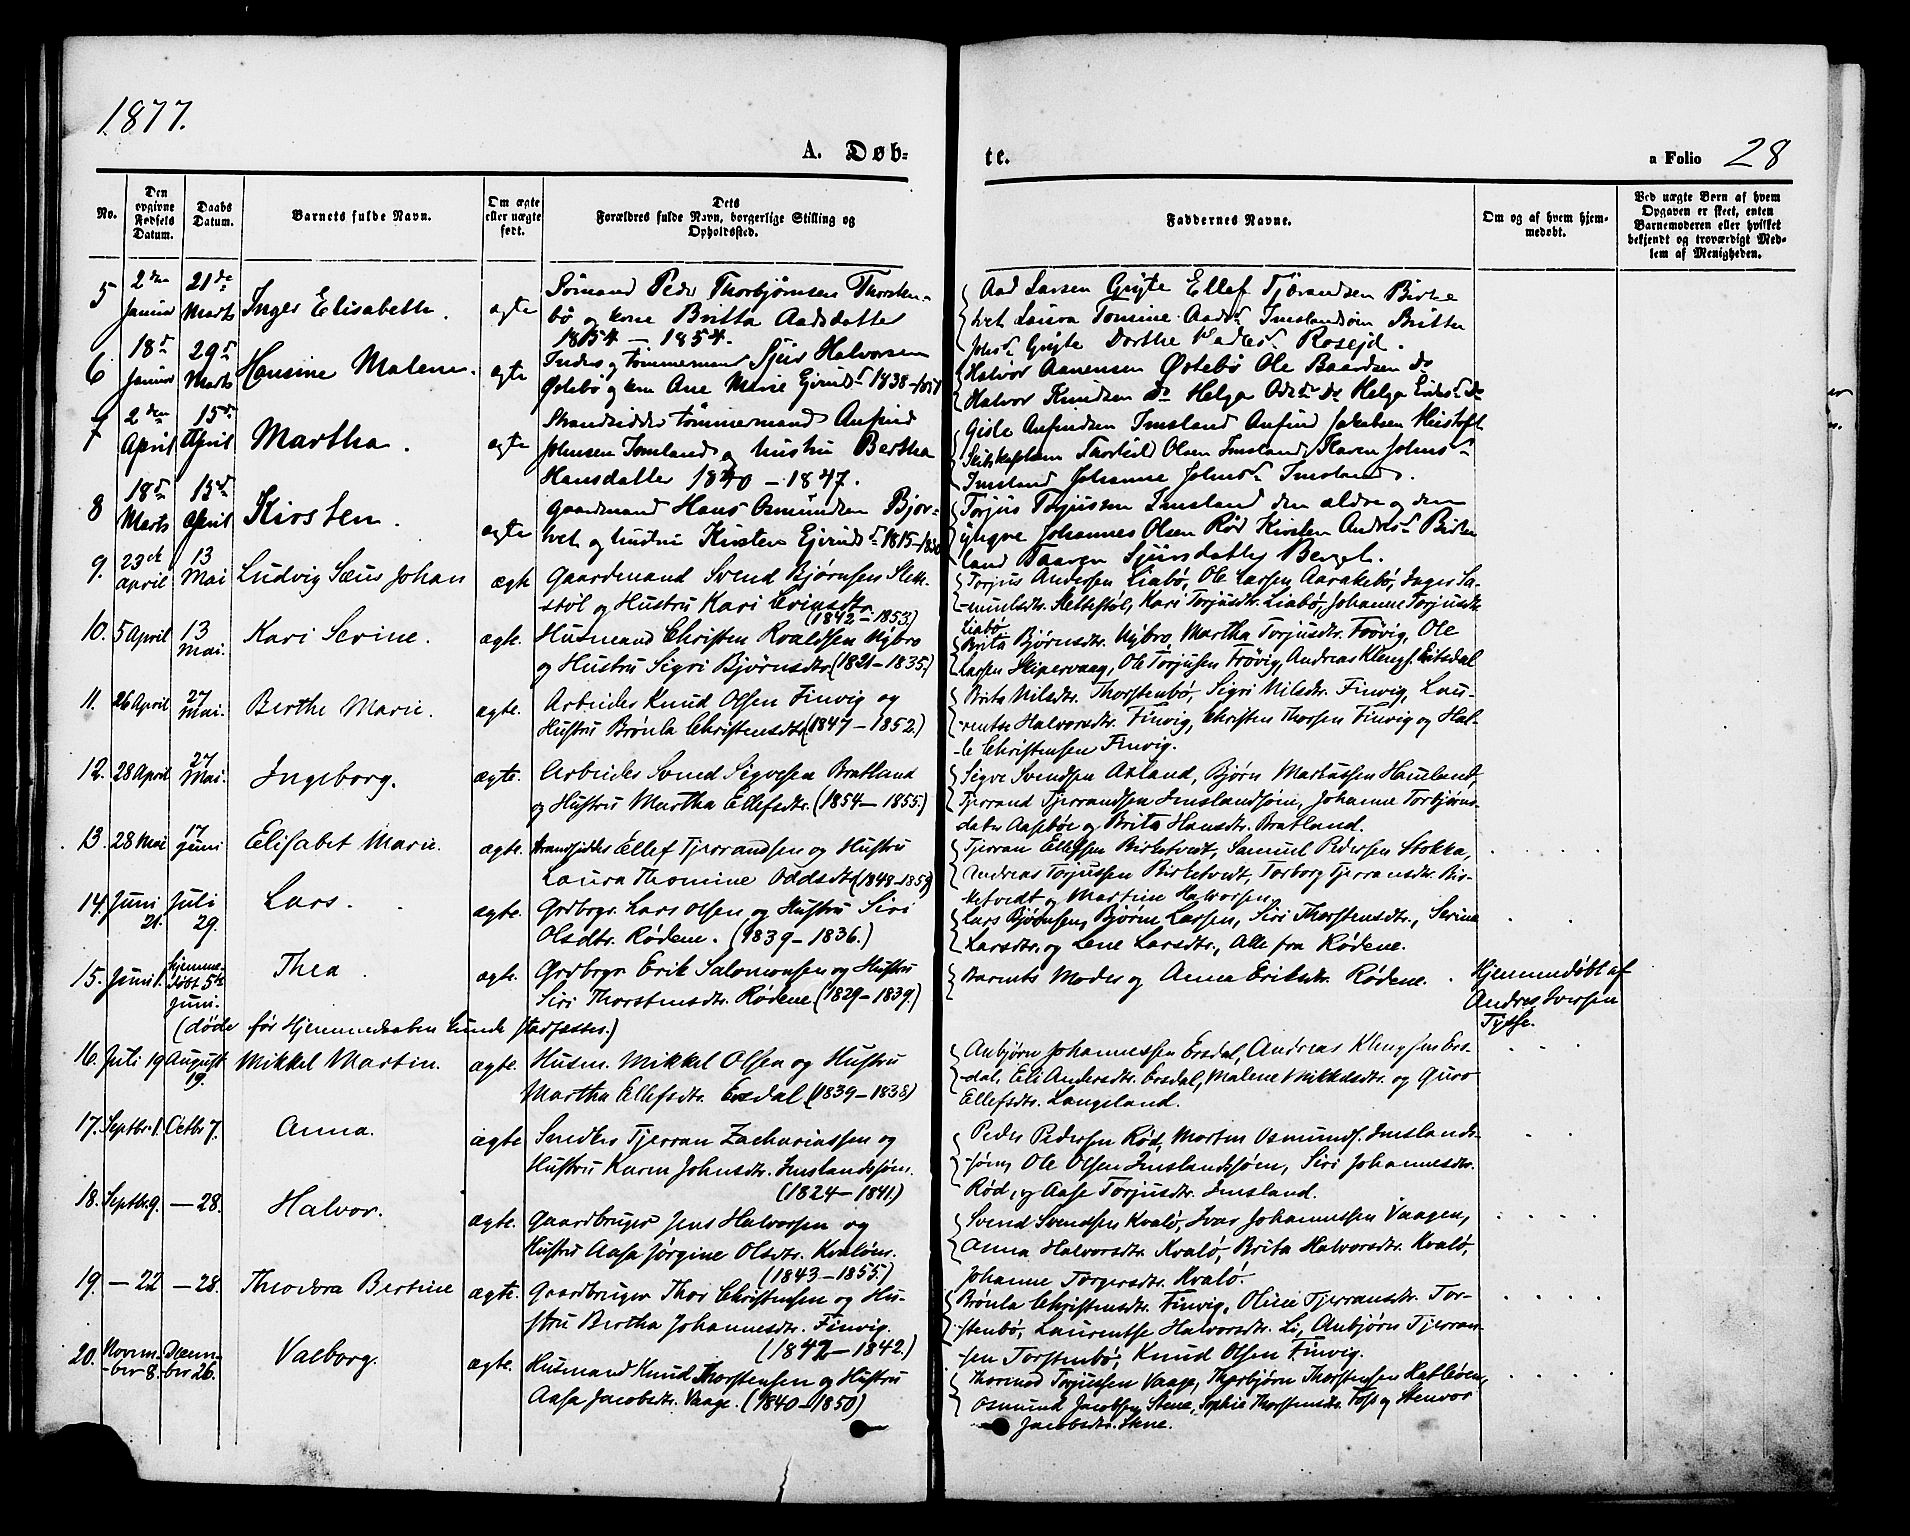 1877.
A. Døb-
te.
a Folio 28
No.
Den opgivne Fødsels Datum.
Daabs Datum.
Barnets fulde Navn.
Om ægte eller uægte født.
Dets Forældres fulde Navn, borgerlige Stilling og Opholdssted.
Faddernes Navne.
Om og af hvem hjemmedøbt.
Ved uægte Børn af hvem Opgaven er skeet, enten Barnemoderen eller hvilket bekjendt og troværdigt Medlem af Menigheden.
5 2den Januar 21de Marts Inger Elisabeth. ægte
Sømand Peder Thorbjørnsen Thorsten-
bø og kone Britta Aadsdatter
1854 – 1854.
Aad Larsen Gryte Ellef Tjærandsen Birke
tvet Laura Tomine Aads Imslandsøen Britta
Gryte Dorthe Rosejd.
6. 18d Januar 29d Marts Hansine Malene. ægte
Inders. og tømmermand Sjur Halvorsen
Østebø og kone Ane Marie Eivinds 1838–
Halvor Aanensen Østebø Ole Baardsen do
Halvor Knudsen do Helga do Helga do
7 2den April 15d April Martha. ægte
Strandsidder tømmermand Anfind
Johnsen Imsland og hustru Bertha
Hansdatter 1840 – 1847.
Gisle Anfindsen Imsland Anfind Jakobsen
Thorkild Olsen Imsland Karen Johns
Imsland Johanne Johns Imsland.
8 18d Marts 15d April Kirsten. ægte
Gaardmand Hans Osmundsen Bjor-
tvet og hustru Kirsten Eivinds 1815–
Torjus Torjussen Imsland den ældre og den
yngre Johannes Olsen Rød Kirsten Anders Birke
land Sjursdatter
9. 23de April 13 Mai Ludvig Sæus Johan ægte
Gaardmand Svend Bjørnsen Slette-
støl og Hustru Kari
(1842–1853.)
Torjus Andersen Liabø, Ole Larsen Aarakebø, Inger Sa-
-muelsdtr. Slettestøl, Kari Torjusdtr. Liabø, Johanne Torjusdtr.
Liabø
10. 5 April 13 Mai. Kari Serine. ægte.
Husmand Christen Roaldsen Nybro
og Hustru Sigri Bjørnsdtr (1821–1835.)
Brita Bjørnsdtr. Nybro, Martha Torjusdtr. Frøvig, Ole
Larsen Skipervaag, Ole Torjusen Frøvig, Andreas Klengs. Ersdal
11. 26 April 27 Mai. Berthe Marie. ægte.
Arbeider Knud Olsen Finvig og
Hustru Brønla Christensdtr (1847–1852.)
Brita Nilsdtr. Thorstenbø, Sigri Nilsdtr. Finvig, Lau-
-rentse Halvorsdtr. Finvig, Christen Thorsen Finvig og Hal-
-le Christensen Finvig.
12. 28 April 27 Mai. Ingeborg. ægte.
Arbeider Svend Sigvesen Bratland
og Hustru Martha Ellefsdtr. (1854–1855.)
Sigve Svendsen Axland, Bjørn Hauland,
Tjerrand Tjerrandsen Imslandsøen, Johanne Torbjørns-
dater Aasebøe og Brita Hansdtr. Bratland.
13. 28 Mai 17 Juni Elisabet Marie. ægte.
Strandsidder Ellef Tjerrandsen og Hustru
Laura Thomine Oddsdtr (1848–1853)
Tjerran Ellefsen Birketvedt, Samuel Pedersen Stokka,
Andreas Torjussen Birketvedt, Torborg Tjerransdtr. Bir-
ketvedt og Martine Halvorsen.
14. Juni 21. Juli 29. Lars. ægte.
Grdbrgr. Lars Olsen og Hustru Siri
Olsdtr. Rødene. (1839–1836.)
Lars Bjørnsen, Bjørne Larsen, Siri Thorstensdtr., Serine
Larsdtr. og Lene Larsdtr., Alle fra Rødene.
15. Juni 1. hjemmedøbt 5te Juni. Thea. ægte.
Grdbrgr Erik Salomonsen og Hustru
Siri Thorstensdtr. Rødene (1829–1839.)
Barnets Moder og Anna Eriksdtr. Rødene.
Hjemmedøbt af
Andres Iversen
Tysse.
(døde før Hjemmedaaben kunde stadfæstes.)
16. Juli 19 August 19. Mikkel Martin. ægte.
Husm. Mikkel Olsen og Hustru
Martha Ellefsdtr. Ersdal (1839–1838)
Anbjørn Johannessen Ersdal, Andreas Klengsen Ers-
-dal, Eli Andersdtr. Ersdal, Malene Mikkelsdtr. og Guro
Ellefsdtr. Langeland.
17. Septbr. 1. Octbr 7. Anna. ægte
Snedker Tjerran Zachariassen og
Hustru Karen Johnsdtr. Imslandssøen.
(1824–1841.)
Peder Pedersen Rød, Morten Osmunds. Imslands-
-søen, Ole Olsen Imslandssøen, Siri Johannesdtr.
Rød, og Aase Torjusdtr. Imsland.
18. Septbr. 9. — 28. Halvor. ægte.
Gaardbruger Jens Halvorsen og
Hustru Aasa Jørgine Olsdtr. Kvaløen.
(1843–1855.)
Svend Svendsen Kvalø, Ivar Johannessen Vaagen,
Anna Halvorsdtr. Kvalø, Brita Halvorsdtr. Kvalø,
Johanne Torgersdtr. Kvalø.
19. — 22 — 28. Theodora Bertine ægte.
Gaardbruger Thor Christensen og Hu-
stru Bertha Johannesdtr. Finvig.
(1842–1842.)
Brønla Christensdtr. Finvig, Oline Tjerransdtr. Tor-
-stenbø, Laurentse Halvorsdtr. Li, Anbjørn Tjerran-
-sen Torstenbø, Knud Olsen Finvig.
20. Novem-ber 8. Decem-ber 26. Valborg. ægte.
Husmand Knud Thorstensen og Hustru
Aasa Jacobsdtr. Vaage. (1840–1850)
Thormod Torjussen Vaage, Thorbjørn Thorstensen
Osmund Jacobsen Stene, Sophie Thorstensdtr. Foss og Stenvor
Jacobsdtr. Stene.